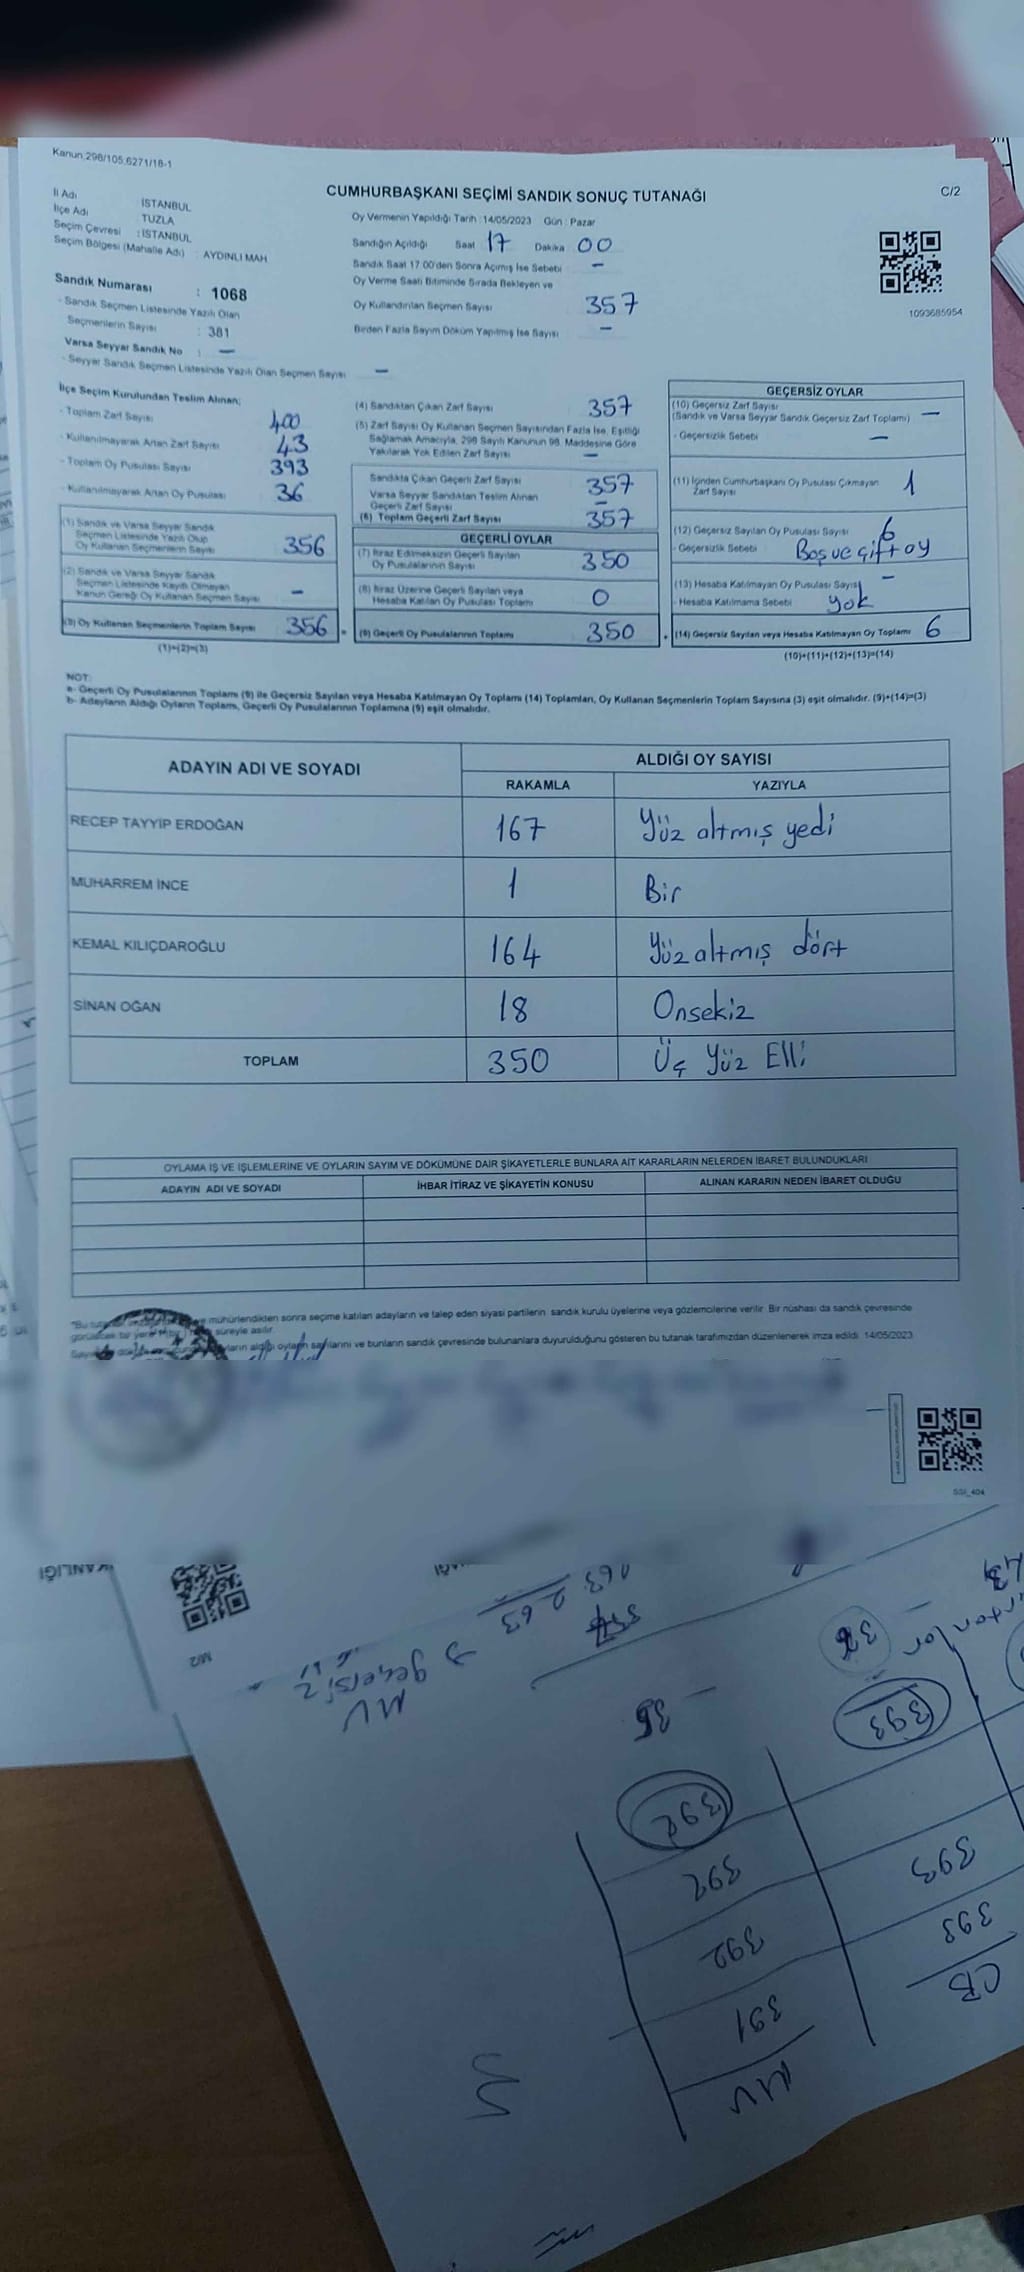 Kanun:298/105;6271/18-1
CUMHURBAŞKANI SEÇİMİ SANDIK SONUÇ TUTANAĞI
C/2
İl Adı İSTANBUL
İlçe Adı TUZLA
Seçim Çevresi : İSTANBUL
Seçim Bölgesi (Mahalle Adı) : AYDINLI MAH
Sandık Numarası : 1068
- Sandık Seçmen Listesinde Yazılı Olan
Seçmenlerin Sayısı : 381
Varsa Seyyar Sandık No : —
- Seyyar Sandık Seçmen Listesinde Yazılı Olan Seçmen Sayısı —
Oy Vermenin Yapıldığı Tarih :14/05/2023 Gün : Pazar
Sandığın Açıldığı Saat 17 Dakika 00
Sandık Saat 17:00'den Sonra Açılmış İse Sebebi —
Oy Verme Saati Bitiminde Sırada Bekleyen ve
Oy Kullandırılan Seçmen Sayısı 357
Birden Fazla Sayım Döküm Yapılmış İse Sayısı —
1093685954
İlçe Seçim Kurulundan Teslim Alınan;
- Toplam Zarf Sayısı 400
- Kullanılmayarak Artan Zarf Sayısı 43
- Toplam Oy Pusulası Sayısı 393
- Kullanılmayarak Artan Oy Pusulası 36
(1) Sandık ve Varsa Seyyar Sandık
Seçmen Listesinde Yazılı Olup
Oy Kullanan Seçmenlerin Sayısı 356
(2) Sandık ve Varsa Seyyar Sandık
Seçmen Listesinde Kayıtlı Olmayan
Kanun Gereği Oy Kullanan Seçmen Sayısı —
(3) Oy Kullanan Seçmenlerin Toplam Sayısı 356
(1)+(2)=(3)
(4) Sandıktan Çıkan Zarf Sayısı 357
(5) Zarf Sayısı Oy Kullanan Seçmen Sayısından Fazla İse, Eşitliği
Sağlamak Amacıyla, 298 Sayılı Kanunun 98. Maddesine Göre
Yakılarak Yok Edilen Zarf Sayısı —
Sandıkta Çıkan Geçerli Zarf Sayısı 357
Varsa Seyyar Sandıktan Teslim Alınan
Geçerli Zarf Sayısı —
(6) Toplam Geçerli Zarf Sayısı 357
GEÇERLİ OYLAR
(7) İtiraz Edilmeksizin Geçerli Sayılan
Oy Pusulalarının Sayısı 350
(8) İtiraz Üzerine Geçerli Sayılan veya
Hesaba Katılan Oy Pusulası Toplamı 0
(9) Geçerli Oy Pusulalarının Toplamı 350
GEÇERSİZ OYLAR
(10) Geçersiz Zarf Sayısı
(Sandık ve Varsa Seyyar Sandık Geçersiz Zarf Toplamı) —
- Geçersizlik Sebebi —
(11) İçinden Cumhurbaşkanı Oy Pusulası Çıkmayan
Zarf Sayısı 1
(12) Geçersiz Sayılan Oy Pusulası Sayısı 6
- Geçersizlik Sebebi Boş ve çift oy
(13) Hesaba Katılmayan Oy Pusulası Sayısı —
- Hesaba Katılmama Sebebi yok
(14) Geçersiz Sayılan veya Hesaba Katılmayan Oy Toplamı 6
(10)+(11)+(12)+(13)=(14)
NOT:
a- Geçerli Oy Pusulalarının Toplamı (9) ile Geçersiz Sayılan veya Hesaba Katılmayan Oy Toplamı (14) Toplamları, Oy Kullanan Seçmenlerin Toplam Sayısına (3) eşit olmalıdır. (9)+(14)=(3)
b- Adayların Aldığı Oyların Toplamı, Geçerli Oy Pusulalarının Toplamına (9) eşit olmalıdır.
ADAYIN ADI VE SOYADI
ALDIĞI OY SAYISI
RAKAMLA YAZIYLA
RECEP TAYYİP ERDOĞAN 167 Yüz altmış yedi
MUHARREM İNCE 1 Bir
KEMAL KILIÇDAROĞLU 164 Yüz altmış dört
SİNAN OĞAN 18 Onsekiz
TOPLAM 350 Üç Yüz Elli
OYLAMA İŞ VE İŞLEMLERİNE VE OYLARIN SAYIM VE DÖKÜMÜNE DAİR ŞİKAYETLERLE BUNLARA AİT KARARLARIN NELERDEN İBARET BULUNDUKLARI
ADAYIN ADI VE SOYADI İHBAR İTİRAZ VE ŞİKAYETİN KONUSU ALINAN KARARIN NEDEN İBARET OLDUĞU
ve mühürlendikten sonra seçime katılan adayların ve talep eden siyasi partilerin sandık kurulu üyelerine veya gözlemcilerine verilir. Bir nüshası da sandık çevresinde
süreyle asılır.
oyların sayılarını ve bunların sandık çevresinde bulunanlara duyurulduğunu gösteren bu tutanak tarafımızdan düzenlenerek imza edildi. 14/05/2023
SGI_404
M/2
263
MV → geçersiz
35
36
393
392
392 393
392 393
391 CB
MV